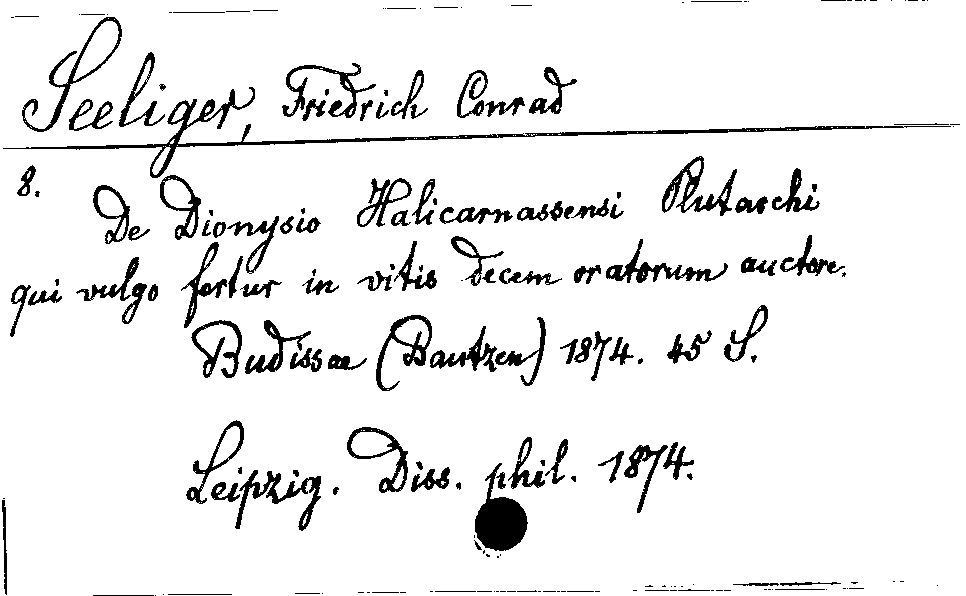 Seeliger, Friedrich Conrad
8.
De Dionysio Halicarnassensi Plutarchi
qui vulgo fertur in vitis decem oratorum auctore.
Budissae (Bautzen) 1874. 45 S.
Leipzig. Diss. phil. 1874.